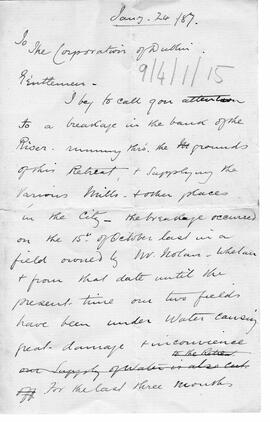 Jany. 24/87.
To
The Corporation of Dublin.
9/4/1/15
Gentlemen.
I beg to call your attention
to a breakage in the bank of the
River. running thro. the grounds
of this Retreat, & supplying the
Various Mills. & other places
in the City - the breakage occurred
on the 15th of October last in a
field owned by Mr. Nolan-Whelan
& from that date until the
present time our two fields
have been under Water causing
great damage & inconvience
to the Retreat
our Supply of Water is also cut
off For the last three months